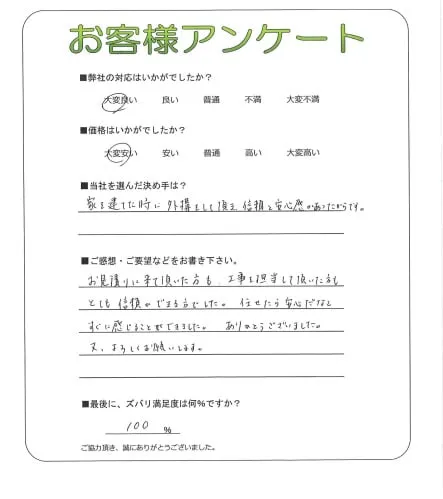 お客様アンケート
■弊社の対応はいかがでしたか?
大変良い 良い 普通 不満 大変不満
■価格はいかがでしたか?
大変安い 安い 普通 高い 大変高い
■当社を選んだ決め手は?
家を建てた時に外構をして頂き、信頼と安心感があったからです。
■ご感想・ご要望などをお書き下さい。
お見積りに来て頂いた方も、工事を担当して頂いた方も
とても信頼ができる方でした。任せたら安心だなと
すぐに感じることができました。ありがとうございました。
又、よろしくお願いします。
■最後に、ズバリ満足度は何%ですか?
100 %
ご協力頂き、誠にありがとうございました。